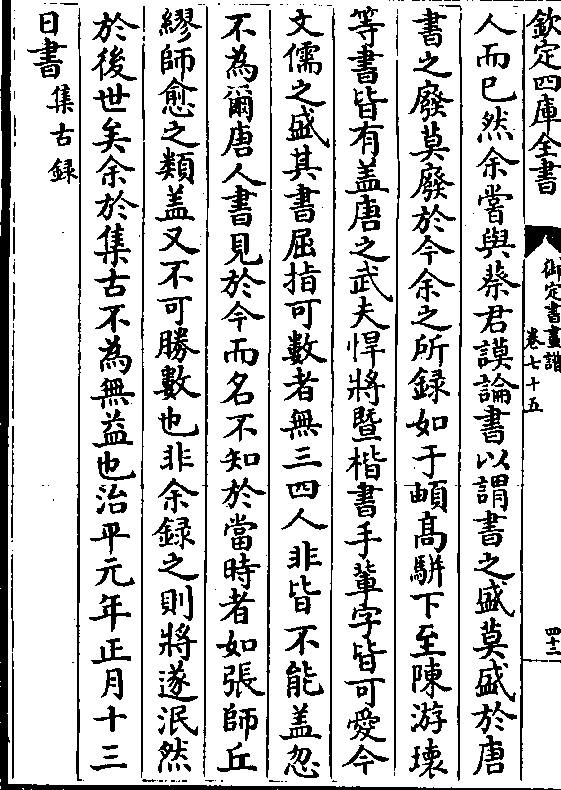 欽定四庫全書
御定書畫譜
卷七十五
四十三
人而已然余嘗與蔡君謨論書以謂書之盛莫盛於唐
書之廢莫廢於今余之所録如于頔高駢下至陳游瓌
等書皆有盖唐之武夫悍將暨楷書手輩字皆可愛今
文儒之盛其書屈指可數者無三四人非皆不能盖忽
不為爾唐人書見於今而名不知於當時者如張師丘
繆師愈之類盖又不可勝數也非余録之則將遂泯然
於後世矣余於集古不為無益也治平元年正月十三
日書集古録